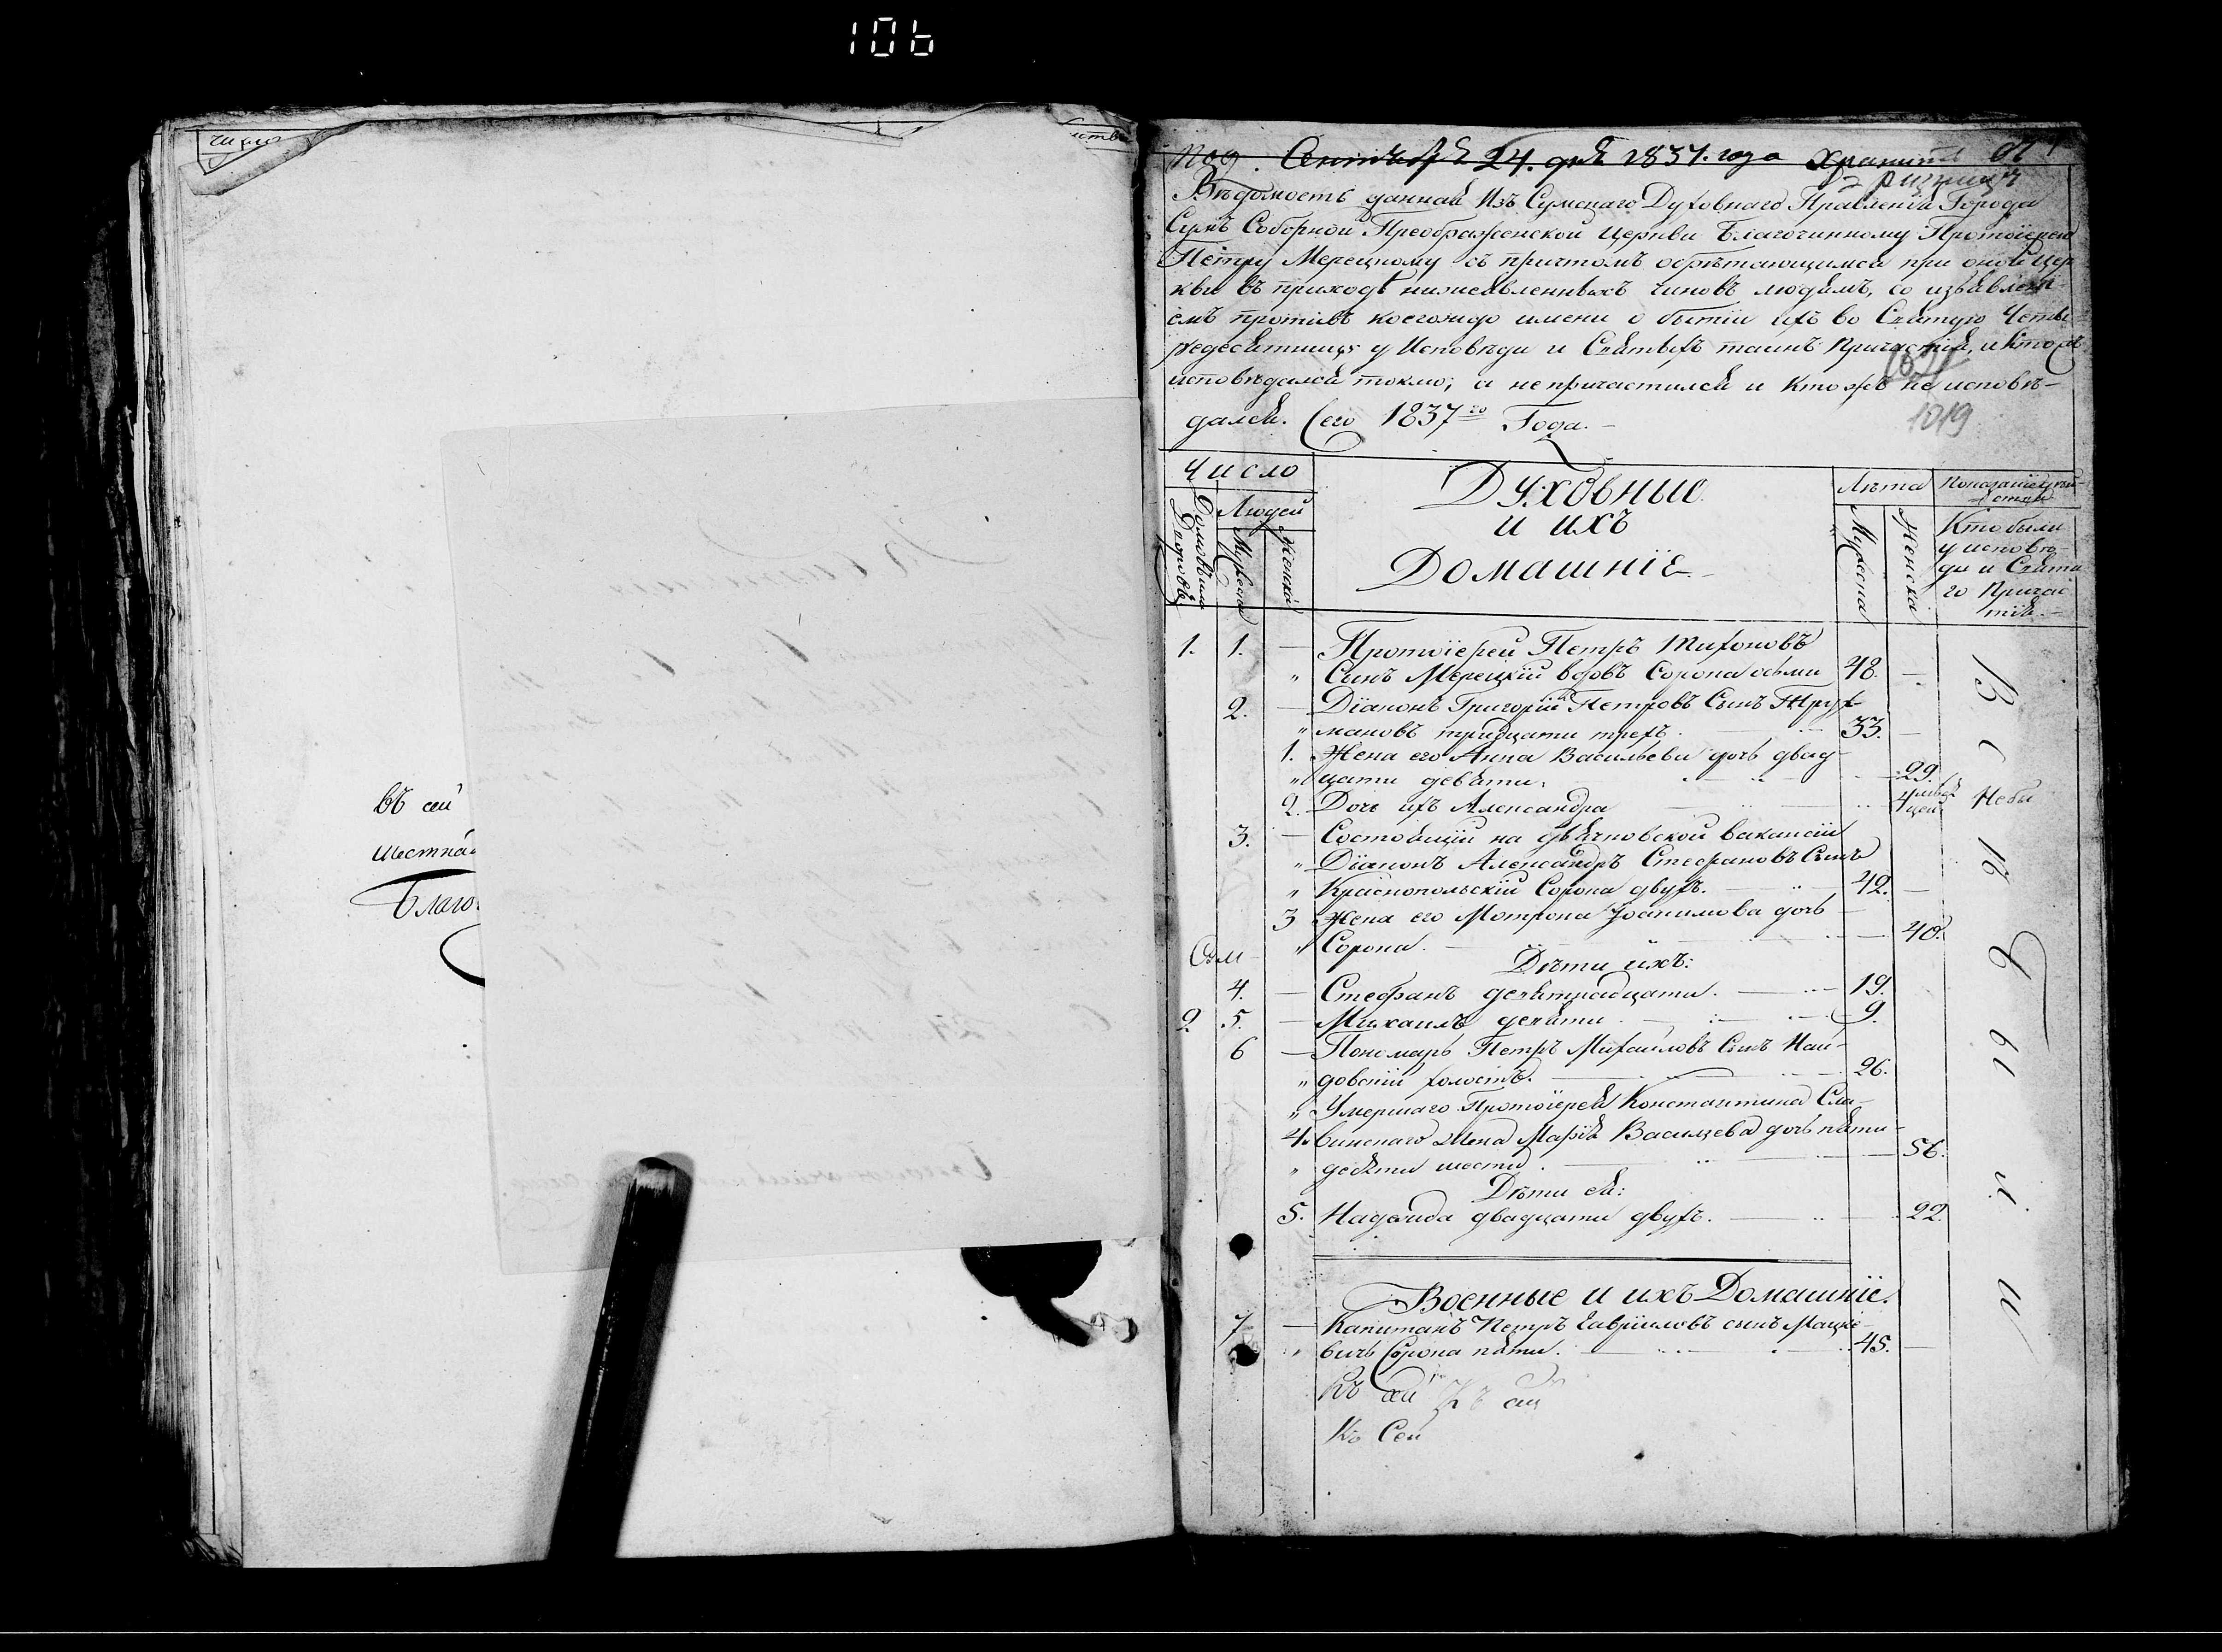 106
число
въ сей
Благо
Под. Сентября 24. дня 1837. года хранить въ
ризницѣ
Вѣдомость данная Изъ Сумскаго Духовнаго Правленія Города
Сумъ Соборной Преображенской Церкви Благочинному Протоіерею
Петру Мерецкому съ причтомъ обрѣтающимся при оной Цер
кви въ приходѣ нижеявленныхъ чиновъ людямъ, со изъявлені-
емъ противъ коегождо имени о бытіи ихъ во Святую Четы
редесятницу у Исповѣди и Святыхъ таинъ Причастія, и кто жъ
исповѣдался токмо; а не причастился и кто жъ не исповѣ-
дался. Сего 1837го Года.
1019
Число
Домовъ или Дворовъ
Людей
Мужеска
Женска
Духовные
и ихъ
Домашніе
Лѣта
Мужеска
Женска
Кто были
у исповѣ-
ди и Свята
го Причас
тія.
1. 1. — Протоіерей Петръ Тихоновъ
" Сынъ Мерецкій вдовъ Сорока осьми 48. —
2. — Діаконъ Григорій Петровъ Сынъ Трух-
" мановъ тридцати трехъ. 33. —
1. Жена его Анна Васильева дочь двад-
" цати девяти. 29.
2. Дочь ихъ Александра 4 мѣсяцей Небы
3. — Состоящій на дьячковской вакансіи
" Діаконъ Александръ Стефановъ Сынъ
" Краснопольскій Сорока двухъ. 42. —
3 Жена его Мотрона Іоакимова дочь
" Сорока. 40.
Дѣти ихъ:
4. — Стефанъ девятнадцати. 19.
2 5. — Михаилъ девяти. 9.
6 — Пономарь Петръ Михайловъ Сынъ Най-
" довскій холостъ. 26.
" Умершаго Протоіерея Константина Сла-
4. винскаго жена Марія Васильева дочь пяти-
" десяти шести. 56.
Дѣти ея:
5. Надежда двадцати двухъ. 22.
Военные и ихъ Домашніе.
7 — Капитанъ Петръ Гавріиловъ сынъ Мацке-
" вичъ Сорока пяти. 45. —
Въ сей Къ сей
Къ Сей
В с ѣ б ы л и